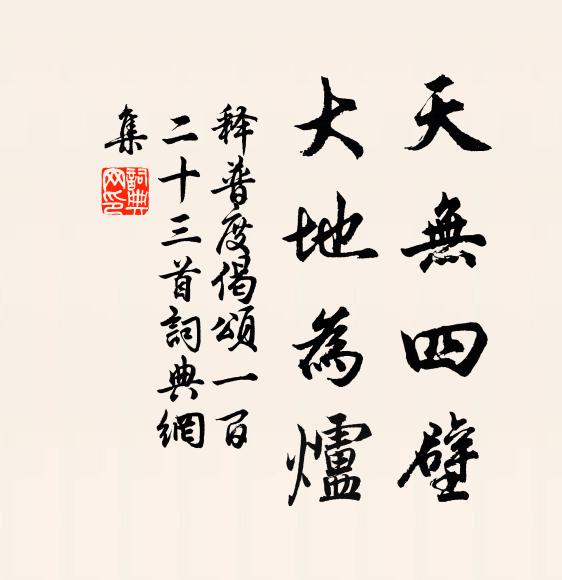 天無四壁
大地為爐
釋普度偈頌一百
二十三首詞典網
集
詞典
网印